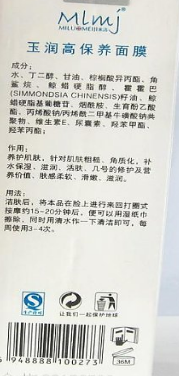 Mlmj
MILUOMEIJI
玉润高保养面膜
成分:
水、丁二醇、甘油、棕榈酸异丙酯、角
鲨烷、鲸蜡硬脂醇、霍霍巴
(SIMMONDSIA CHINENSIS)籽油、鲸
蜡硬脂基葡糖苷、烟酰胺、生育酚乙酸
酯、丙烯酸钠/丙烯酰二甲基牛磺酸钠共
聚物、维生素E、尿囊素、羟苯甲酯、
羟苯丙酯;
作用:
养护肌肤，针对肌肤粗糙、角质化、补
水保湿、滋润、活肤、几号的修护及营
养价值、肤感柔软、滑嫩、滋润。
用法:
洁肤后，将本品在脸上进行来回打圈式
按摩约15~20分钟后，便可以用湿纸巾
擦除，同时用清水作一下清洁即可，每
周使用3-4次。
QS
生产许可
让我们一起保护地球
36M
6948888100273